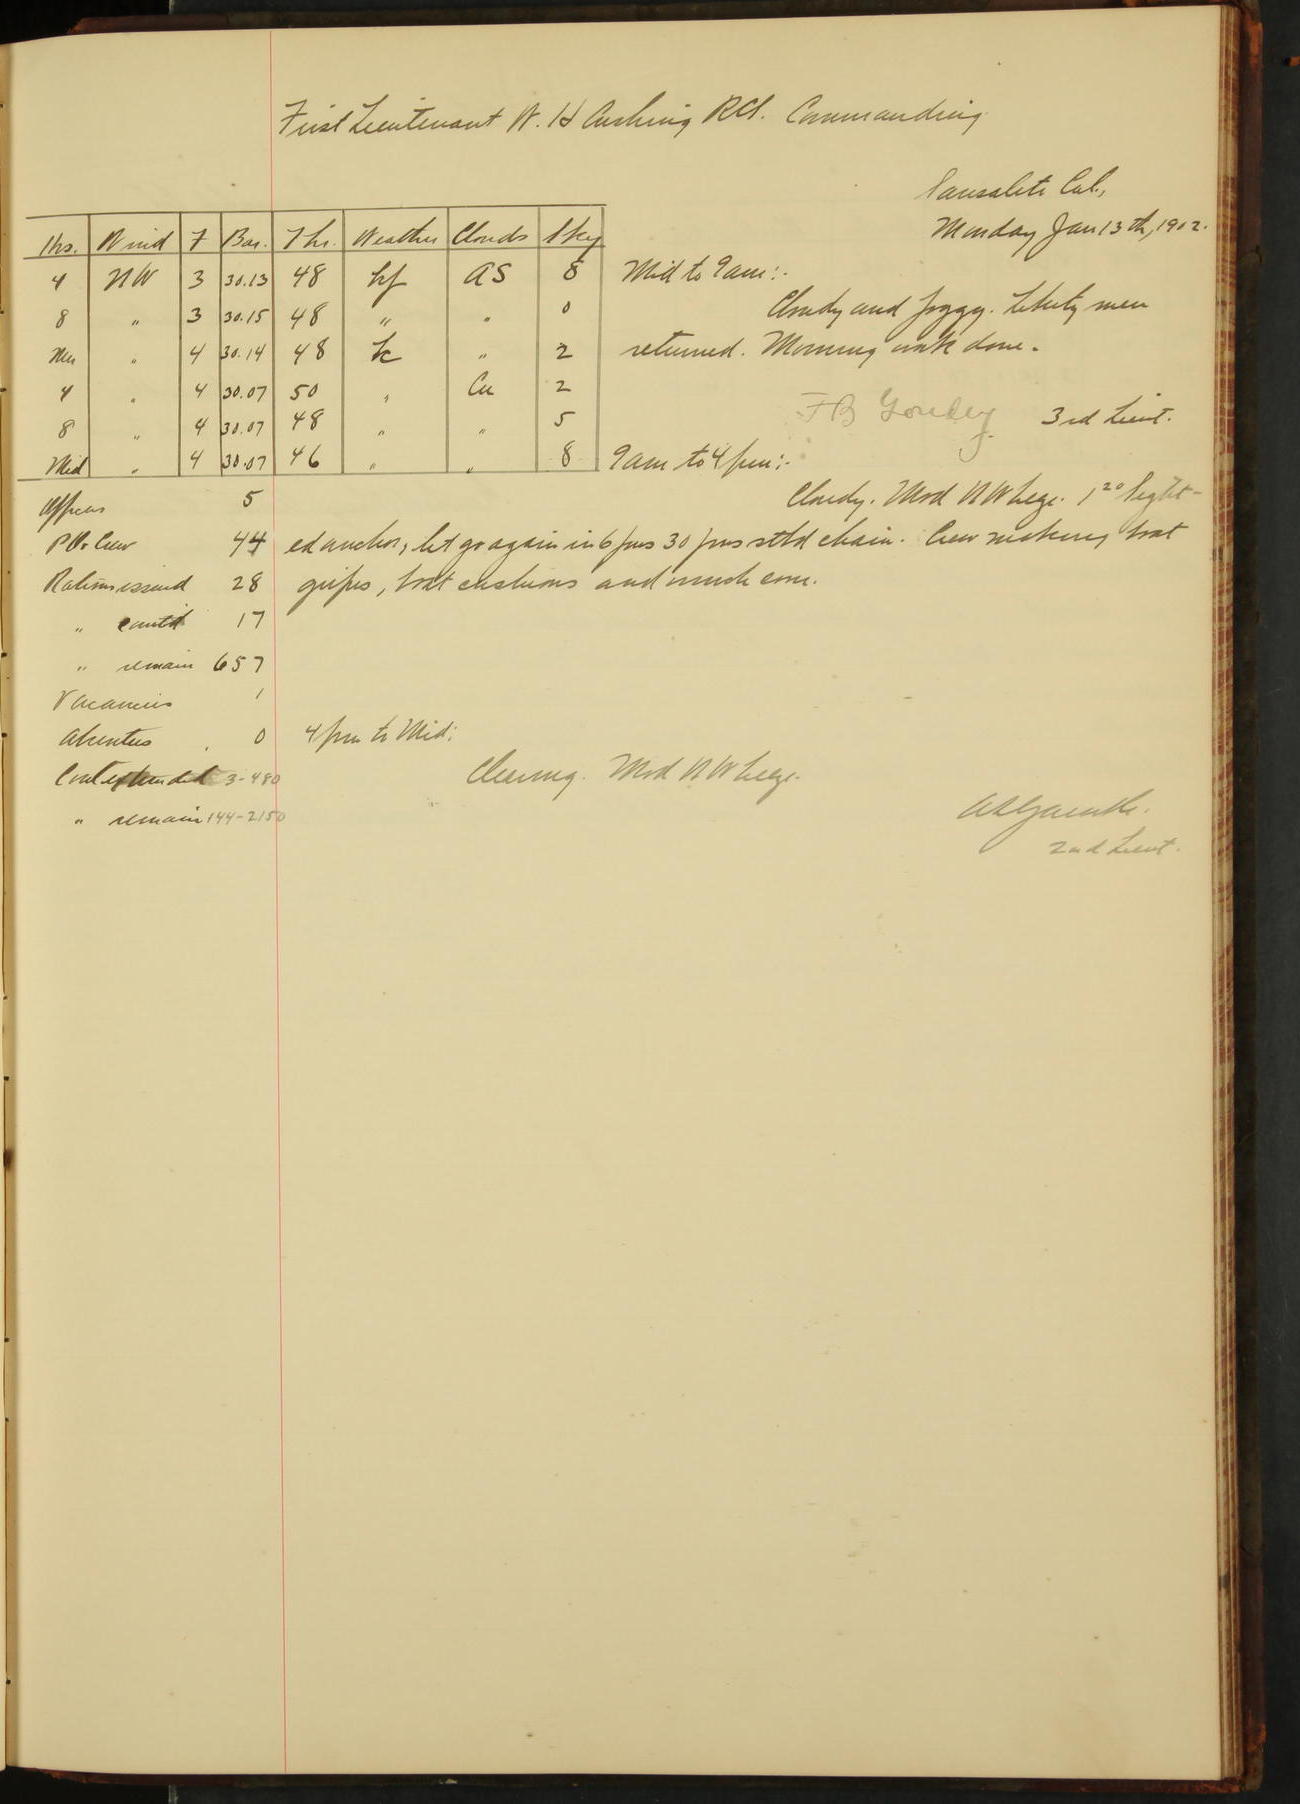 First Lieutenant W. H Cushing RCS. Commanding
Sausalito Cal.,
Monday Jan 13th, 1902.
Hrs. Wind F Bar. Thr. Weather Clouds Sky
4 NW 3 30.13 48 hf AS 8
8 " 3 30.15 48 " " 0
Mer " 4 30.14 48 " 2
4 " 4 30.07 50 " Cu 2
8 " 4 30.07 48 " " 5
Mid " 4 30.07 46 " " 8
Mid to 9am:-
Cloudy and foggy. Liberty men
returned. Morning work done.
3rd Lieut.
9am to 4pm:-
Cloudy. Mod NW breeze. 1²⁰ Sight-
ed anchor, let go again in 6 fms 30 fms stbd chain. Crew making boat
gripes, boat cushions and much
4pm to Mid:
Clearing. Mod NW breeze.
2nd Lieut.
Officers 5
P.O. Crew 44
Rations issued 28
" com'td 17
" remain 657
Vacancies 1
Absentees 0
Coal expended 3-480
" remain 144-2150